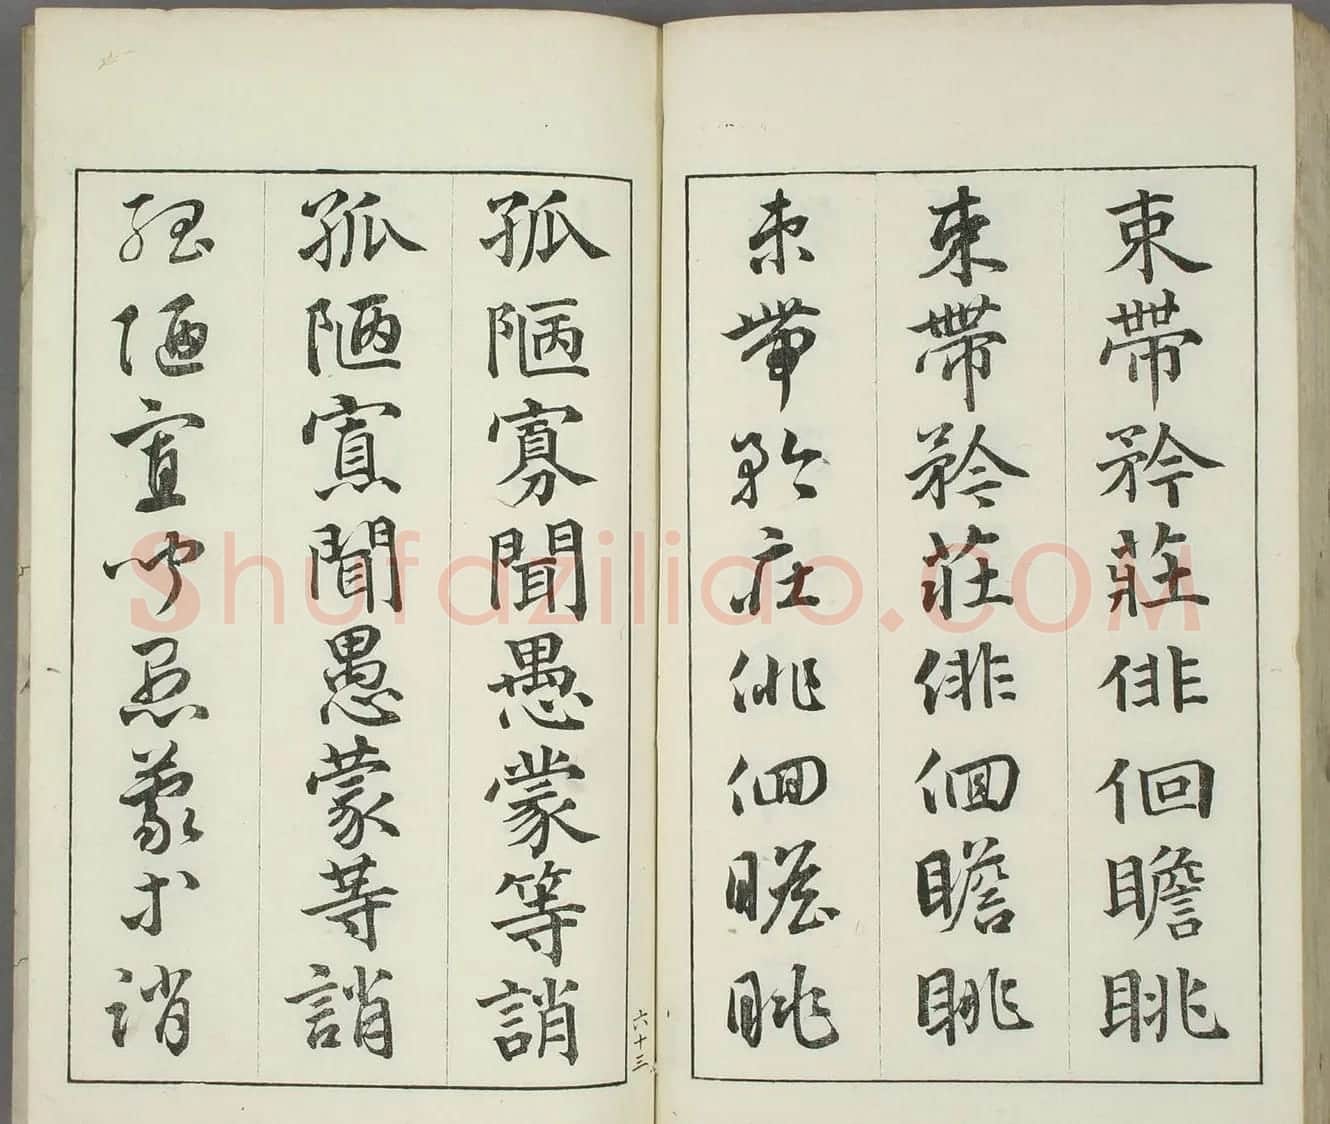 束帶矜莊徘徊瞻眺
束帶矜莊徘徊瞻眺
束帶矜莊徘徊瞻眺
六十三
孤陋寡聞愚蒙等誚
孤陋寡聞愚蒙等誚
孤陋寡聞愚蒙等誚
Shufaziliao.COM